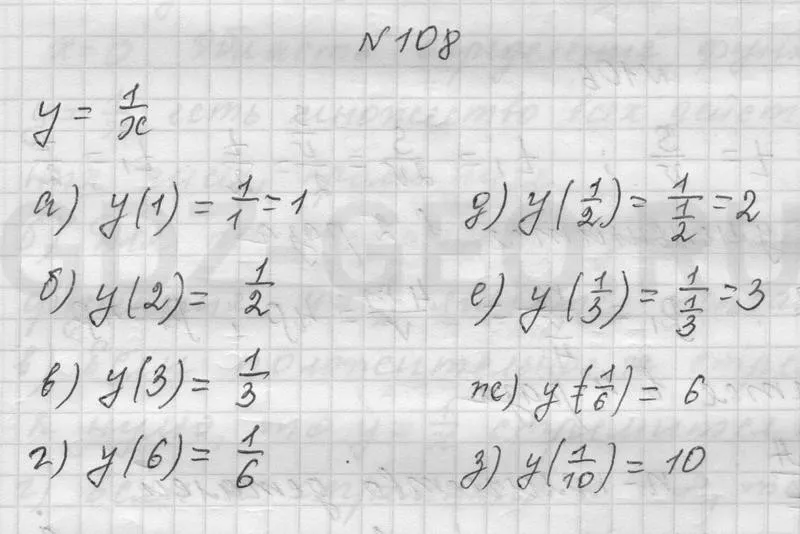 N 108
y = 1/x
а) y(1) = 1/1 = 1
б) y(2) = 1/2
в) y(3) = 1/3
г) y(6) = 1/6
д) y(1/2) = 1/(1/2) = 2
е) y(1/3) = 1/(1/3) = 3
ж) y(1/6) = 6
з) y(1/10) = 10